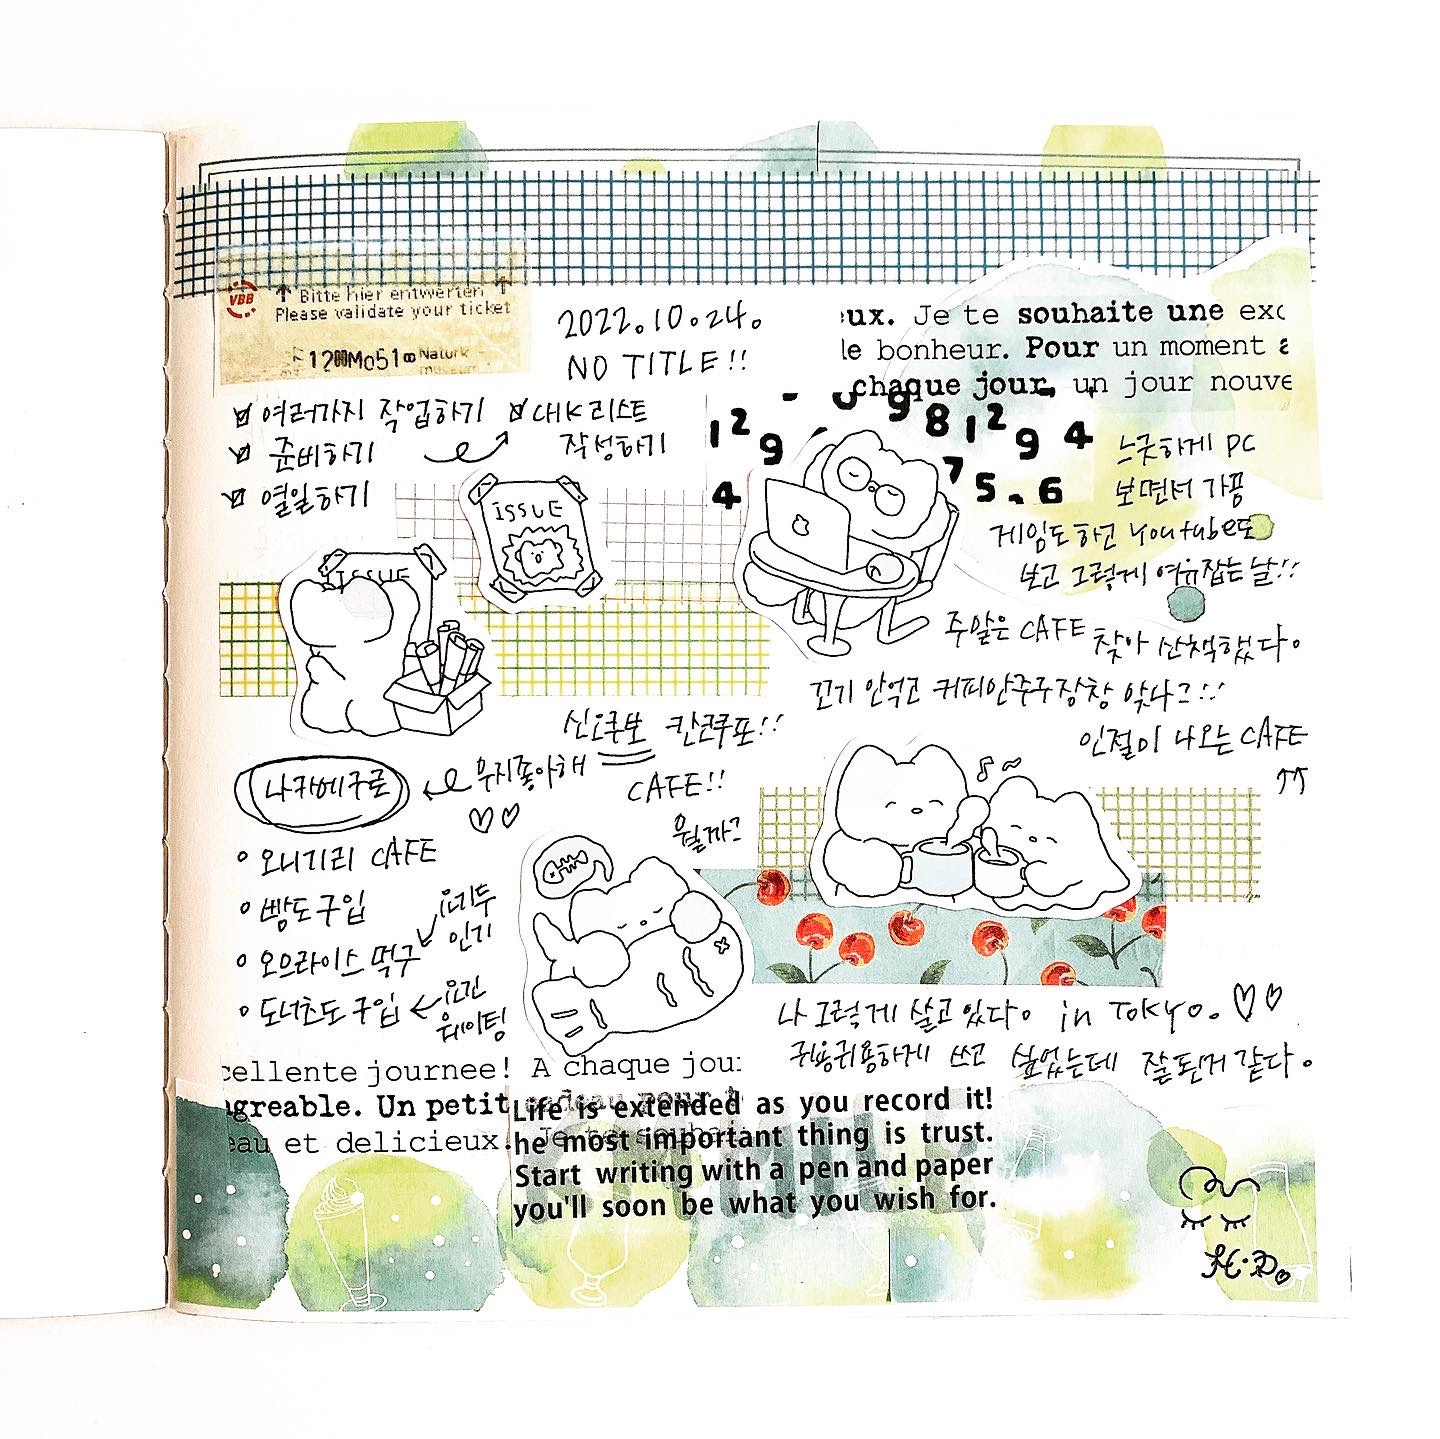 VBB
↑ Bitte hier entwerten ↑
Please validate your ticket
Naturk
2022.10.24.
NO TITLE!!
ux. Je te souhaite une exc
le bonheur. Pour un moment a
chaque jour, un jour nouve
여러가지 작업하기
CHK리스트
작성하기
준비하기
열일하기
ISSUE
ISSUE
1 2 9 8 1 2 9 4
4 7 5 . 6
느긋하게 PC
보면서 가끔
게임도 하고 youtube도
보고 그렇게 여유잡는 날!!
주말은 CAFE 찾아 산책했다.
꼬기 안먹고 커피만주구장창 맞나그!!
인절미 나오는 CAFE
↑↑
신오쿠보 칸코쿠포!!
CAFE!!
뭘까그
나카메구로
우지좋아해
오니기리 CAFE
빵도 구입
오므라이스 먹구
요기두
인기
도너츠도 구입
요긴
웨이팅
나 그렇게 살고 있다. in TOKYO.
귀용귀용하게 쓰고 싶었는데 잘된거 같다.
cellente journee! A chaque jou
agreable. Un petit cadeau pour
eau et delicieux. Je te souhai
Life is extended as you record it!
he most important thing is trust.
Start writing with a pen and paper
you'll soon be what you wish for.